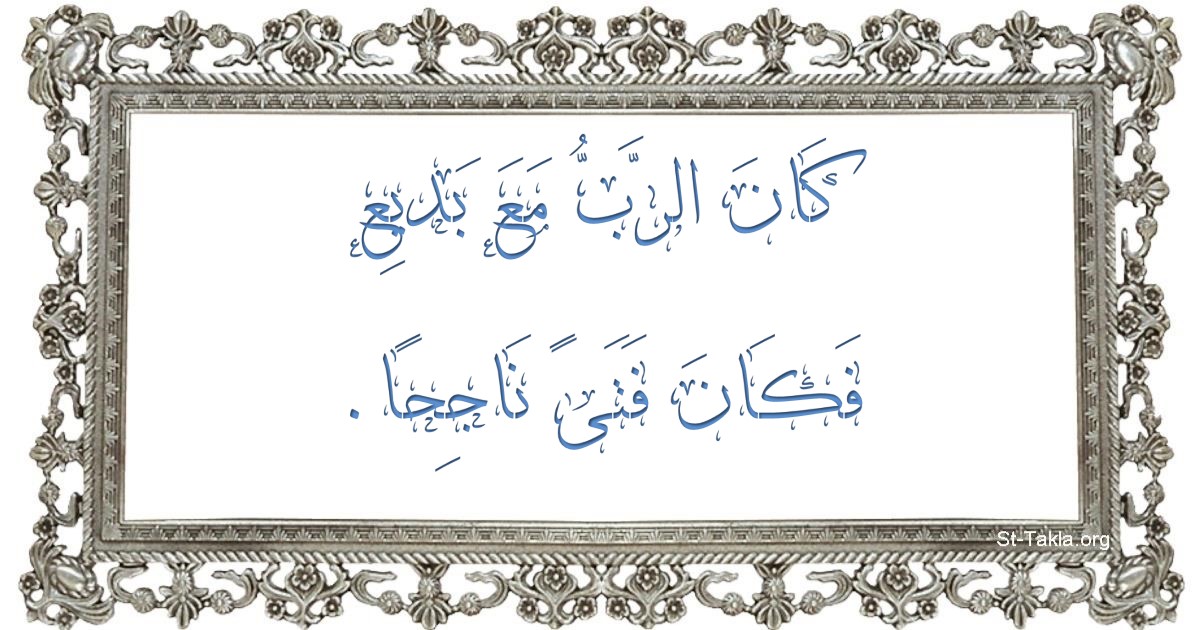 كَانَ الرَّبُّ مَعَ بَدِيعٍ
فَكَانَ فَتَىً نَاجِحًا .
St-Takla.org